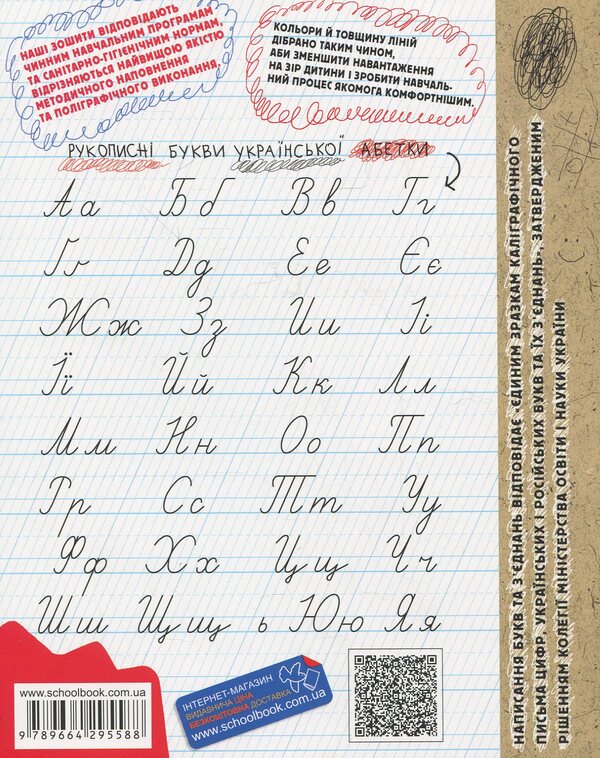 НАШІ ЗОШИТИ ВІДПОВІДАЮТЬ
ЧИННИМ НАВЧАЛЬНИМ ПРОГРАМАМ
ТА САНІТАРНО-ГІГІЄНІЧНИМ НОРМАМ,
ВІДРІЗНЯЮТЬСЯ НАЙВИЩОЮ ЯКІСТЮ
МЕТОДИЧНОГО НАПОВНЕННЯ
ТА ПОЛІГРАФІЧНОГО ВИКОНАННЯ.
КОЛЬОРИ Й ТОВЩИНУ ЛІНІЙ
ДІБРАНО ТАКИМ ЧИНОМ,
АБИ ЗМЕНШИТИ НАВАНТАЖЕННЯ
НА ЗІР ДИТИНИ І ЗРОБИТИ НАВЧАЛЬ-
НИЙ ПРОЦЕС ЯКОМОГА КОМФОРТНІШИМ.
РУКОПИСНІ БУКВИ УКРАЇНСЬКОЇ АБЕТКИ
Аа Бб Вв Гг
Ґґ Дд Ее Єє
Жж Зз Ии Іі
Її Йй Кк Лл
Мм Нн Оо Пп
Рр Сс Тт Уу
Фф Хх Цц Чч
Шш Щщ ь Юю Яя
НАПИСАННЯ БУКВ ТА З'ЄДНАНЬ ВІДПОВІДАЄ „ЄДИНИМ ЗРАЗКАМ КАЛІГРАФІЧНОГО
ПИСЬМА ЦИФР, УКРАЇНСЬКИХ І РОСІЙСЬКИХ БУКВ ТА ЇХ З'ЄДНАНЬ", ЗАТВЕРДЖЕНИМ
РІШЕННЯМ КОЛЕГІЇ МІНІСТЕРСТВА ОСВІТИ І НАУКИ УКРАЇНИ
www.schoolbook.com.ua
9 789664 295588
ІНТЕРНЕТ-МАГАЗИН
ВИДАВНИЧА ЦІНА
БЕЗКОШТОВНА ДОСТАВКА
www.schoolbook.com.ua